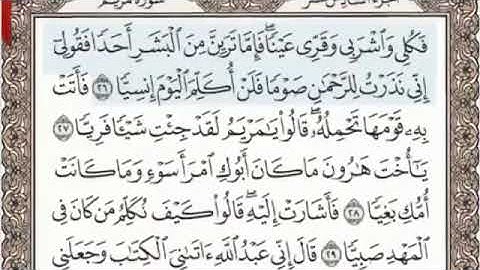 سورة مريم
الجزء السادس عشر
فَكُلِى وَٱشْرَبِى وَقَرِّى عَيْنًا ۖ فَإِمَّا تَرَيِنَّ مِنَ ٱلْبَشَرِ أَحَدًا فَقُولِىٓ
إِنِّى نَذَرْتُ لِلرَّحْمَٰنِ صَوْمًا فَلَنْ أُكَلِّمَ ٱلْيَوْمَ إِنسِيًّا ٢٦ فَأَتَتْ
بِهِۦ قَوْمَهَا تَحْمِلُهُۥ ۖ قَالُوا۟ يَٰمَرْيَمُ لَقَدْ جِئْتِ شَيْـًٔا فَرِيًّا ٢٧
يَٰٓأُخْتَ هَٰرُونَ مَا كَانَ أَبُوكِ ٱمْرَأَ سَوْءٍ وَمَا كَانَتْ
أُمُّكِ بَغِيًّا ٢٨ فَأَشَارَتْ إِلَيْهِ ۖ قَالُوا۟ كَيْفَ نُكَلِّمُ مَن كَانَ فِى
ٱلْمَهْدِ صَبِيًّا ٢٩ قَالَ إِنِّى عَبْدُ ٱللَّهِ ءَاتَىٰنِىَ ٱلْكِتَٰبَ وَجَعَلَنِى